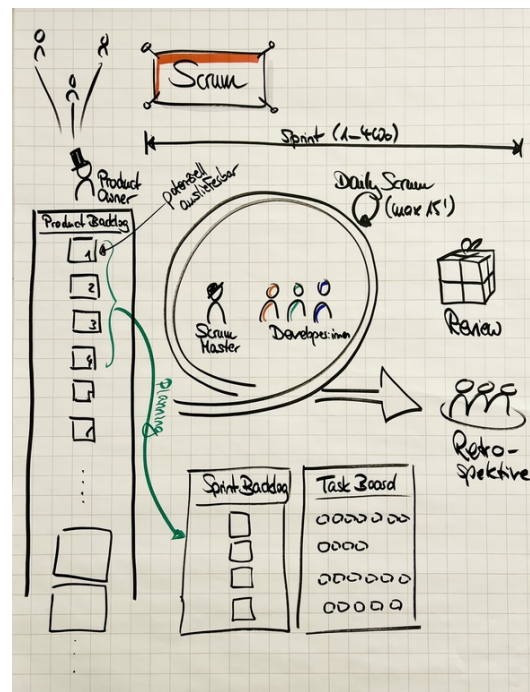 Scrum
Sprint (1-4 Wo)
Product
Owner
potenziell
auslieferbar
Daily Scrum
(max 15')
Product Backlog
1
2
3
4
Scrum
Master
Developer:innen
Review
Planning
Retro-
spektive
Sprint Backlog
Task Board